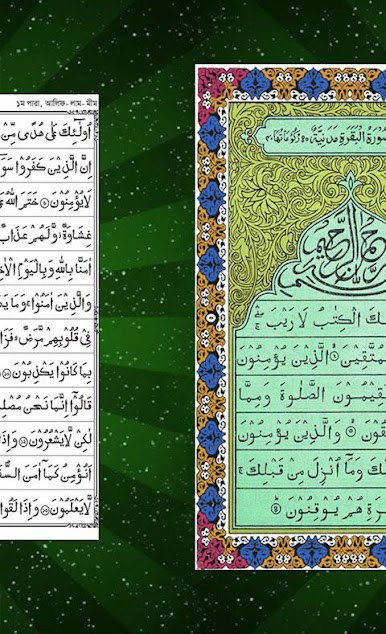 ১ম পারা, আলিফ- লাম- মীম
اُولٰٓئِكَ عَلٰى هُدًى مِّنْ
اِنَّ الَّذِيْنَ كَفَرُوْا سَوَآ
لَا يُؤْمِنُوْنَ ۝ خَتَمَ اللّٰهُ
غِشَاوَةٌ وَّلَهُمْ عَذَابٌ
اٰمَنَّا بِاللّٰهِ وَبِالْيَوْمِ الْاٰخِ
وَالَّذِيْنَ اٰمَنُوْا ۚ وَمَا
فِىْ قُلُوْبِهِمْ مَّرَضٌ ۙ فَزَا
بِمَا كَانُوْا يَكْذِبُوْنَ ۝۱۰
قَالُوْٓا اِنَّمَا نَحْنُ مُصْلِ
لٰكِنْ لَّا يَشْعُرُوْنَ ۝۱۲ وَاِذَ
اَنُؤْمِنُ كَمَآ اٰمَنَ السُّفَ
لَّا يَعْلَمُوْنَ ۝۱۳ وَاِذَا لَقُوا
سُوْرَةُ الْبَقَرَةِ مَدَنِيَّةٌ
الرَّحْمٰنِ الرَّحِيْمِ
لِكَ الْكِتٰبُ لَا رَيْبَ ۛ
مُتَّقِيْنَ ۝ الَّذِيْنَ يُؤْمِنُوْنَ
قِيْمُوْنَ الصَّلٰوةَ وَمِمَّا
قُوْنَ ۝ وَالَّذِيْنَ يُؤْمِنُوْنَ
لَيْكَ وَمَآ اُنْزِلَ مِنْ قَبْلِكَ ۚ
خِرَةِ هُمْ يُوْقِنُوْنَ ۝